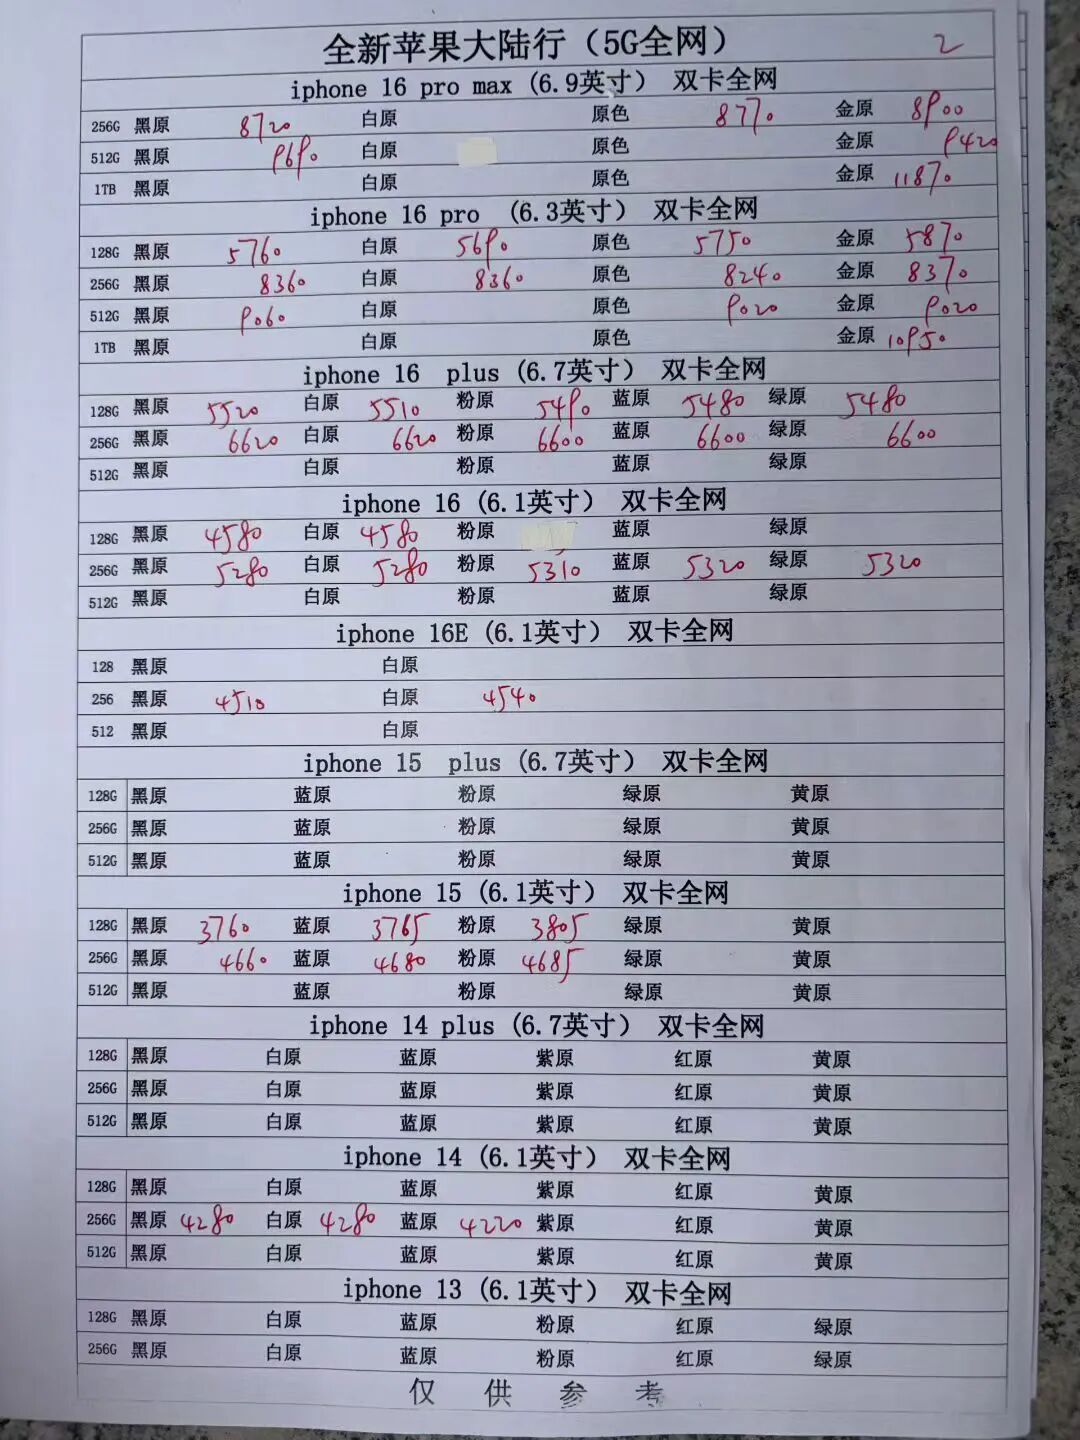 全新苹果大陆行（5G全网） 2
iphone 16 pro max (6.9英寸） 双卡全网
256G 黑原 8720 白原 原色 8770 金原 8900
512G 黑原 9690 白原 原色 金原 9420
1TB 黑原 白原 原色 金原 11870
iphone 16 pro （6.3英寸） 双卡全网
128G 黑原 5760 白原 5690 原色 5750 金原 5870
256G 黑原 8360 白原 8360 原色 8240 金原 8370
512G 黑原 9060 白原 原色 9020 金原 9020
1TB 黑原 白原 原色 金原 10950
iphone 16 plus (6.7英寸） 双卡全网
128G 黑原 5520 白原 5510 粉原 5490 蓝原 5480 绿原 5480
256G 黑原 6620 白原 6620 粉原 6600 蓝原 6600 绿原 6600
512G 黑原 白原 粉原 蓝原 绿原
iphone 16 (6.1英寸） 双卡全网
128G 黑原 4580 白原 4580 粉原 蓝原 绿原
256G 黑原 5280 白原 5280 粉原 5310 蓝原 5320 绿原 5320
512G 黑原 白原 粉原 蓝原 绿原
iphone 16E (6.1英寸） 双卡全网
128 黑原 白原
256 黑原 4510 白原 4540
512 黑原 白原
iphone 15 plus (6.7英寸） 双卡全网
128G 黑原 蓝原 粉原 绿原 黄原
256G 黑原 蓝原 粉原 绿原 黄原
512G 黑原 蓝原 粉原 绿原 黄原
iphone 15 (6.1英寸） 双卡全网
128G 黑原 3760 蓝原 3765 粉原 3805 绿原 黄原
256G 黑原 4660 蓝原 4680 粉原 4685 绿原 黄原
512G 黑原 蓝原 粉原 绿原 黄原
iphone 14 plus (6.7英寸） 双卡全网
128G 黑原 白原 蓝原 紫原 红原 黄原
256G 黑原 白原 蓝原 紫原 红原 黄原
512G 黑原 白原 蓝原 紫原 红原 黄原
iphone 14 (6.1英寸） 双卡全网
128G 黑原 白原 蓝原 紫原 红原 黄原
256G 黑原 4280 白原 4280 蓝原 4220 紫原 红原 黄原
512G 黑原 白原 蓝原 紫原 红原 黄原
iphone 13 (6.1英寸） 双卡全网
128G 黑原 白原 蓝原 粉原 红原 绿原
256G 黑原 白原 蓝原 粉原 红原 绿原
仅 供 参 考